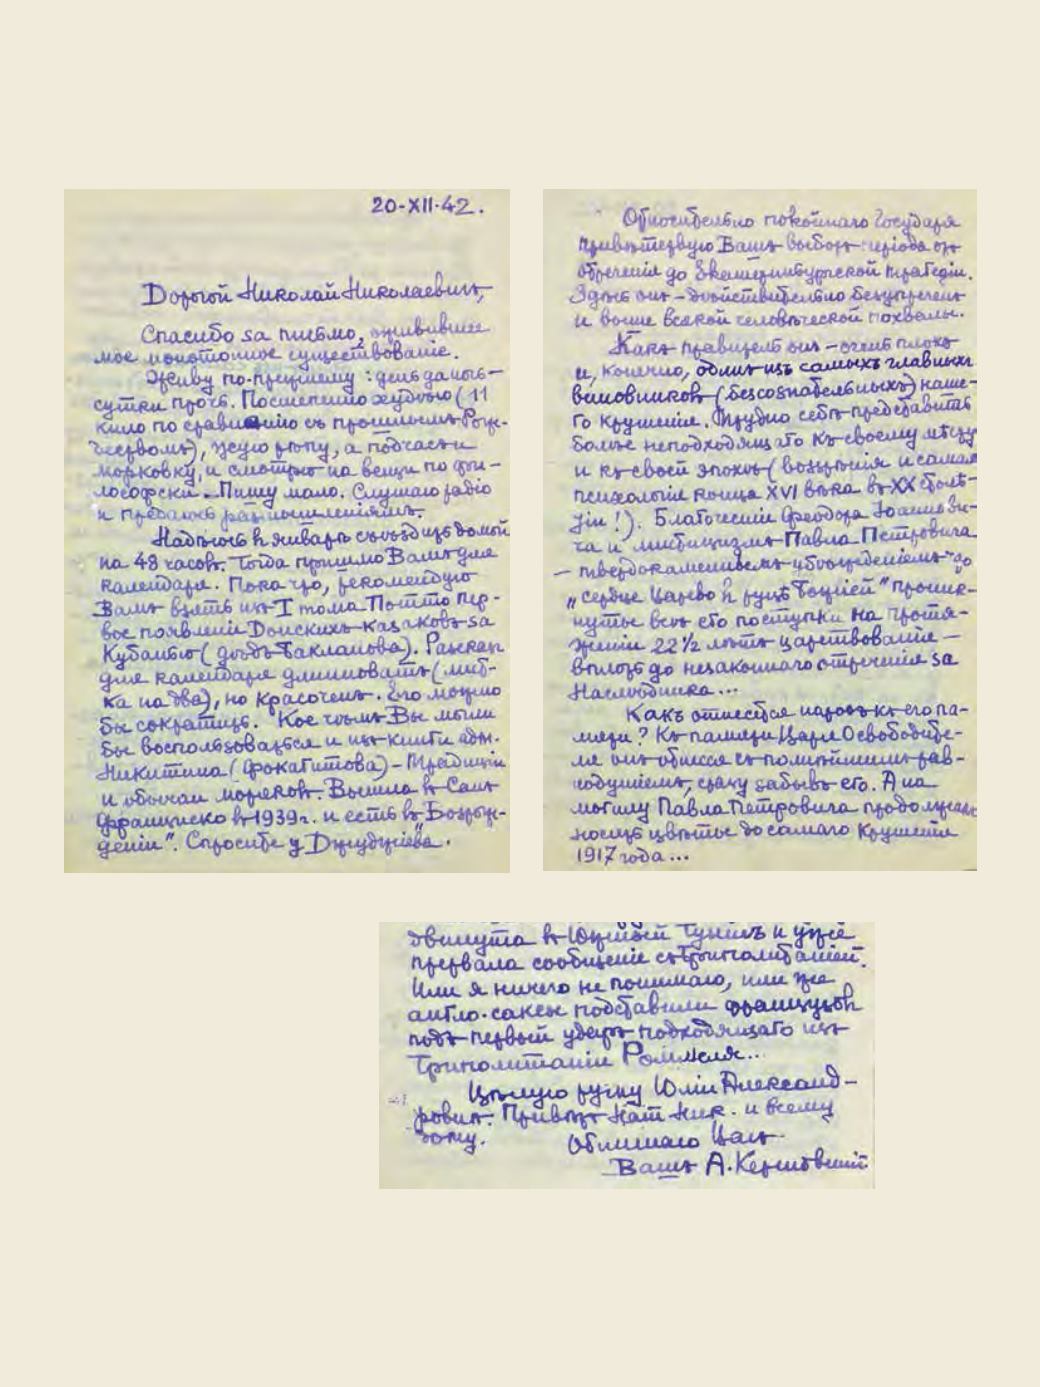 20-XII-42.
Дорогой Николай Николаевичъ,
Спасибо за письмо, оживившее
мое монотонное существованіе.
Живу по-прежнему: день да ночь —
сутки прочь. Постепенно худѣю (11
кило по сравненію съ прошлымъ Рож-
дествомъ), жую рѣпу, а подчасъ и
морковку, и смотрю на вещи по фи-
лософски. Пишу мало. Слушаю радіо
и предаюсь размышленіямъ.
Надѣюсь въ январѣ съѣздить домой
на 48 часовъ. Тогда пришлю Вамъ для
календаря. Пока что, рекомендую
Вамъ взять изъ I тома Потто пер-
вое появленіе Донскихъ казаковъ за
Кубанью (дѣдъ Бакланова). Разсказъ
для календаря длинноватъ (лист-
ка на два), но красоченъ. Его можно
бы сократить. Кое чѣмъ Вы могли
бы воспользоваться и изъ книги адм.
Никитина (Фокагитова) – Традиціи
и обычаи моряковъ. Вышла въ Санъ
Франциско въ 1939 г. и есть въ „Возрож-
деніи“. Спросите у
Относительно покойнаго Государя
привѣтствую Вашъ выборъ: періодъ отъ
отреченія до Екатеринбургской трагедіи.
Здѣсь онъ – дѣйствительно безупреченъ
и выше всякой человѣческой похвалы.
Какъ правитель онъ – очень плохъ
и, конечно, одинъ изъ самыхъ главныхъ
виновниковъ (безсознательныхъ) наше-
го крушенія. Трудно себѣ представить
болѣе неподходящаго къ своему мѣсту
и къ своей эпохѣ (воззрѣнія и самая
психологія конца XVI вѣка въ XX столѣ-
тіи!). Благочестіи Феодора Іоанови-
ча и мистицизмъ Павла Петровича
— твердокаменнымъ убѣжденіемъ что
„сердце Царево въ руцѣ Божіей“ проник-
нуты всѣ его поступки на протя-
женіи 22½ лѣтъ царствованія —
вплоть до незаконнаго отреченія за
Наслѣдника...
Какъ отнесется народъ къ его па-
мяти? Къ памяти Царя Освободите-
ля онъ отнесся съ полнѣйшимъ рав-
нодушіемъ, сразу забывъ его. А на
могилу Павла Петровича продолжали
носить цвѣты до самаго Крушенія
1917 года...
двинута въ Южный Тунисъ и уже
прервала сообщеніе съ Триполитаніей.
Или я ничего не понимаю, или же
англо-саксы подставили французовъ
подъ первый ударъ подходящаго изъ
Триполитаніи Роммеля...
Цѣлую ручку Юліи Александ-
ровнѣ. Привѣтъ Нат. Ник. и всему
дому. Обнимаю Васъ
Вашъ А. Керсновскій